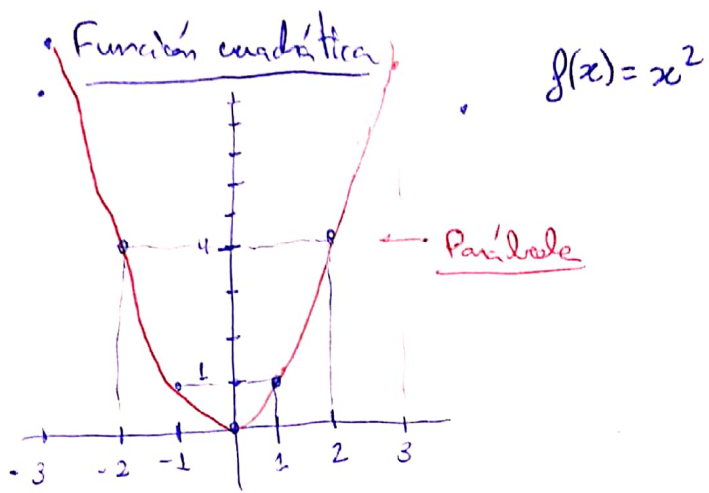 Función cuadrática
f(x) = x²
4
Parábola
1
-3 -2 -1 1 2 3